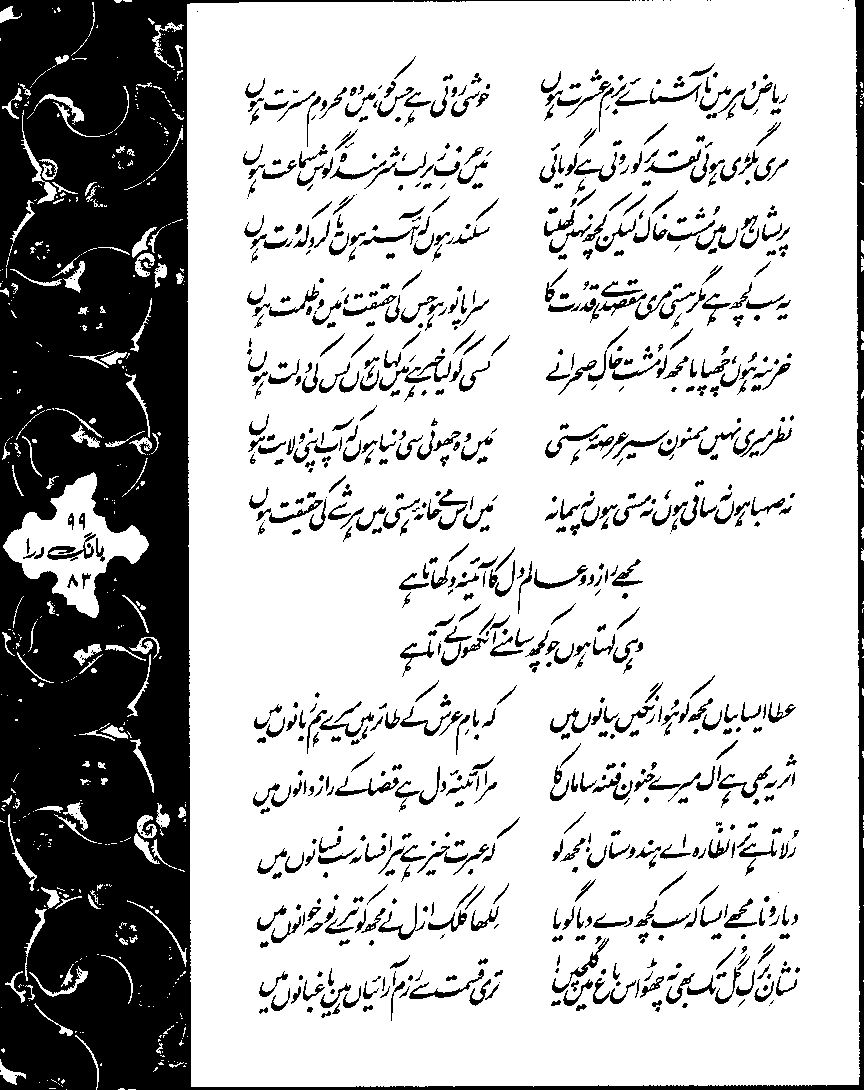 ریاضِ دہر میں ناآشنائے بزمِ عشرت ہوں خوشی روتی ہے جس کو، میں وہ محرومِ مسرّت ہوں
مری بگڑی ہوئی تقدیر کو روتی ہے گویائی میں حرفِ زیرِ لب، شرمندۂ گوشِ سماعت ہوں
پریشاں ہوں میں مُشتِ خاک، لیکن کچھ نہیں کھُلتا سکندر ہوں کہ آئینہ ہوں یا گردِ کدُورت ہوں
یہ سب کچھ ہے مگر ہستی مری مقصد ہے قُدرت کا سراپا نور ہو جس کی حقیقت، میں وہ ظلمت ہوں
خزینہ ہُوں، چھُپایا مجھ کو مُشتِ خاکِ صحرا نے کسی کو کیا خبر ہے میں کہاں ہوں کس کی دولت ہوں!
نظر میری نہیں ممنونِ سیرِ عرصۂ ہستی میں وہ چھوٹی سی دنیا ہوں کہ آپ اپنی ولایت ہوں
نہ صہبا ہوں نہ ساقی ہوں، نہ مستی ہوں نہ پیمانہ میں اس مے خانۂ ہستی میں ہر شے کی حقیقت ہوں
مجھے رازِ دو عالم دل کا آئینہ دکھاتا ہے
وہی کہتا ہوں جو کچھ سامنے آنکھوں کے آتا ہے
عطا ایسا بیاں مجھ کو ہُوا رنگیں بیانوں میں کہ بامِ عرش کے طائر ہیں میرے ہم زبانوں میں
اثر یہ بھی ہے اک میرے جُنونِ فتنہ ساماں کا مرا آئینۂ دل ہے قضا کے رازدانوں میں
رُلاتا ہے ترا نظّارہ اے ہندوستاں! مجھ کو کہ عبرت خیز ہے تیرا فسانہ سب فسانوں میں
دیا رونا مجھے ایسا کہ سب کچھ دے دیا گویا لِکھا کلکِ ازل نے مجھ کو تیرے نوحہ خوانوں میں
نشانِ برگِ گُل تک بھی نہ چھوڑ اس باغ میں گُلچیں! تری قسمت سے رزم آرائیاں ہیں باغبانوں میں
۹۹
بانگِ درا
۸۳